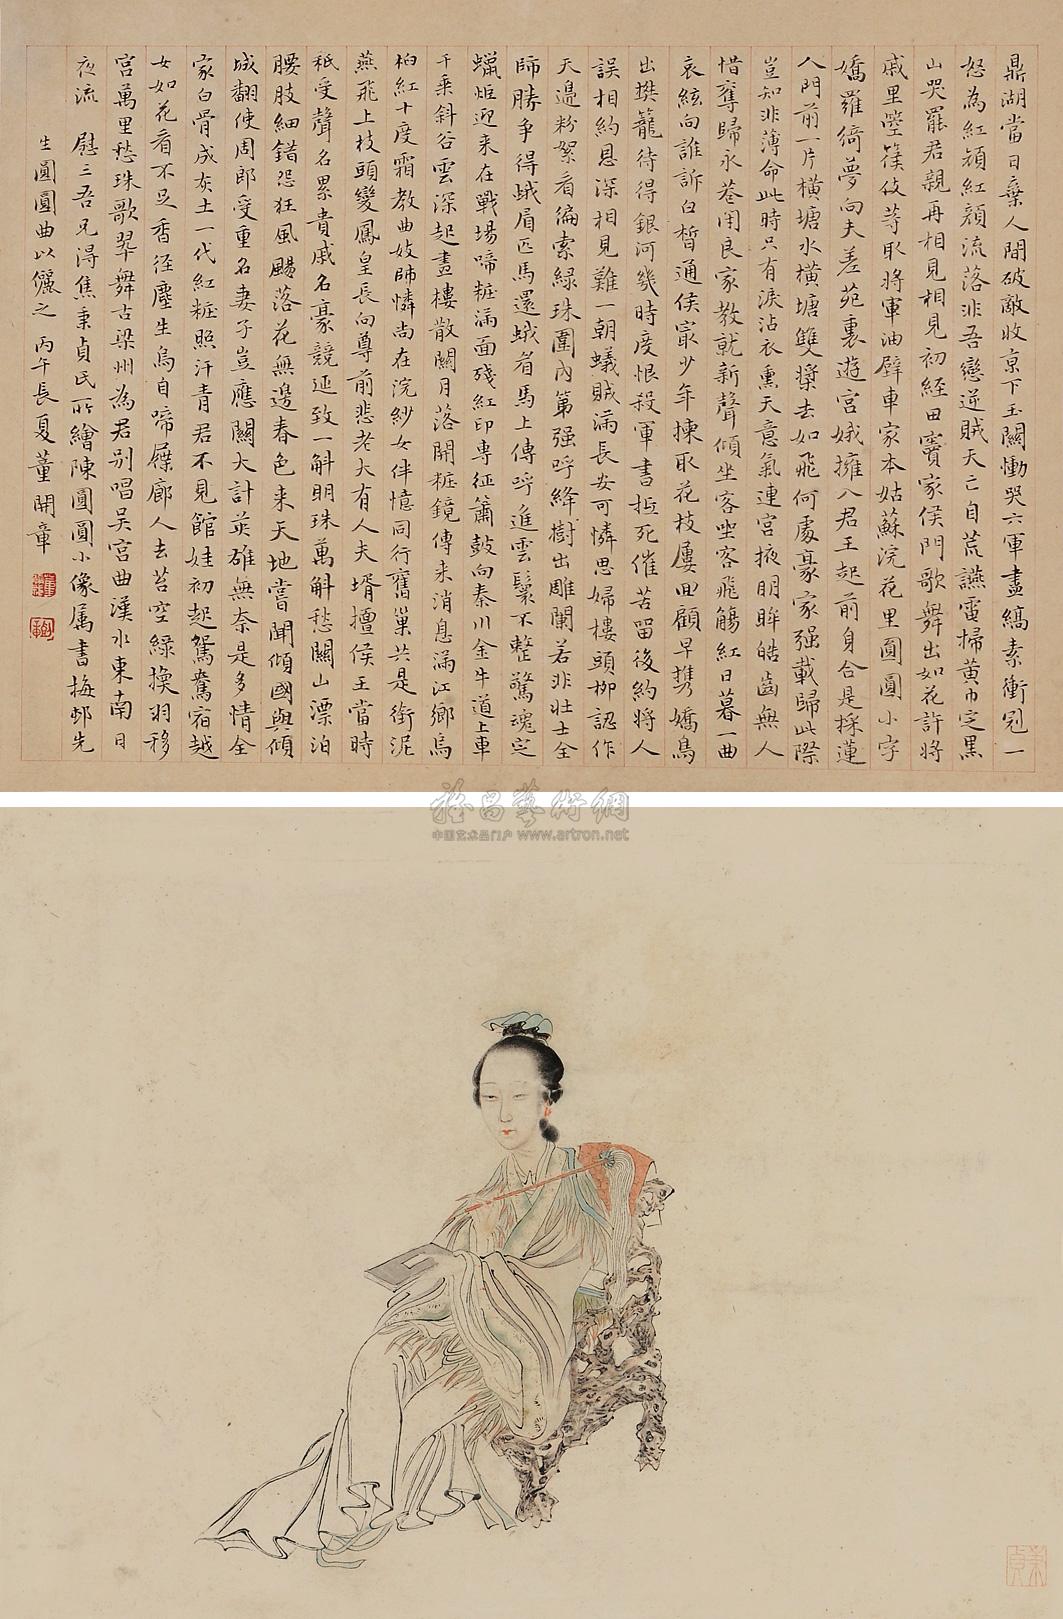 鼎湖當日棄人間破敵收京下玉關慟哭六軍盡縞素衝冠一
怒為紅顏紅顏流落非吾戀逆賊天亡自荒讌電掃黃巾定黑
山哭罷君親再相見相見初經田竇家侯門歌舞出如花許將
戚里箜篌伎等取將軍油壁車家本姑蘇浣花里圓圓小字
嬌羅綺夢向夫差苑裏遊宮娥擁入君王起前身合是採蓮
人門前一片橫塘水橫塘雙槳去如飛何處豪家强載歸此際
豈知非薄命此時只有淚沾衣熏天意氣連宮掖明眸皓齒無人
惜奪歸永巷閉良家教就新聲傾坐客坐客飛觴紅日暮一曲
哀絃向誰訴白皙通侯最少年揀取花枝屢回顧早携嬌鳥
出樊籠待得銀河幾時度恨殺軍書抵死催苦留後約將人
誤相約恩深相見難一朝蟻賊滿長安可憐思婦樓頭柳認作
天邊粉絮看徧索綠珠圍內第强呼絳樹出雕闌若非壯士全
師勝爭得蛾眉匹馬還蛾眉馬上傳呼進雲鬟不整驚魂定
蠟炬迎来在戰場啼粧滿面殘紅印專征簫鼓向秦川金牛道上車
千乘斜谷雲深起畫樓散關月落開粧鏡傳来消息滿江鄉烏
桕紅十度霜教曲妓師憐尚在浣紗女伴憶同行舊巢共是銜泥
燕飛上枝頭變鳳皇長向尊前悲老大有人夫壻擅侯王當時
秖受聲名累貴戚名豪競延致一斛明珠萬斛愁關山漂泊
腰肢細錯怨狂風颺落花無邊春色来天地嘗聞傾國與傾
城翻使周郎受重名妻子豈應關大計英雄無奈是多情全
家白骨成灰土一代紅粧照汗青君不見館娃初起鴛鴦宿越
女如花看不足香徑塵生烏自啼屧廊人去苔空綠換羽移
宮萬里愁珠歌翠舞古梁州為君别唱吳宮曲漢水東南日
夜流　慰三吾兄得焦秉貞氏所繪陳圓圓小像属書梅邨先
生圓圓曲以儷之　丙午長夏董開章
雅昌藝術網
中国艺术品门户 www.artron.net
秉貞